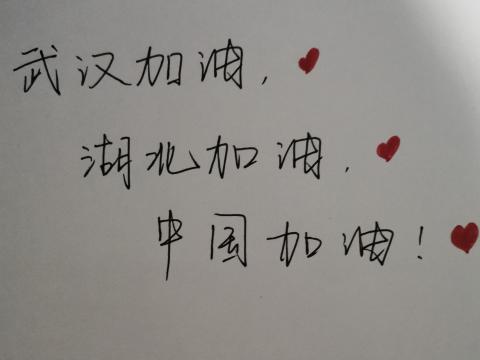 武汉加油，
湖北加油，
中国加油！